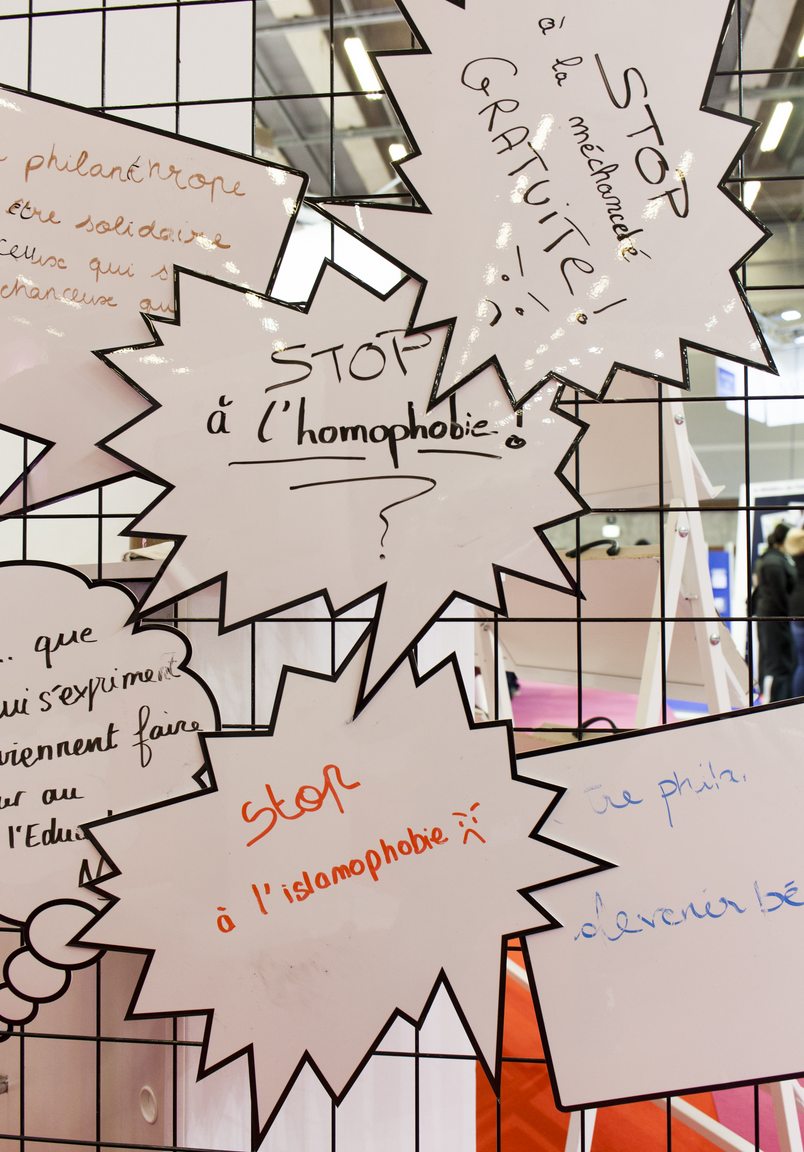 STOP
à la méchanceté
GRATUITE!
philanthrope
être solidaire
ceux qui s
chanceux qu
STOP
à l'homophobie!
?
... que
ui s'expriment
viennent faire
ur au
l'Edu
N
Stop
à l'islamophobie
tre phila.
devenir bé